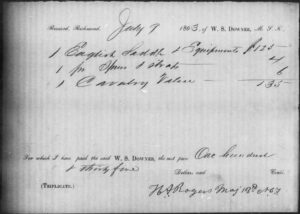 Received, Richmond, July 9 1863, of W. S. DOWNER, M. S. K.
1 English Saddle & Equipments $125
1 pr Spurs & Straps 4
1 Cavalry Valise 6
135
For which I have paid the said W. S. DOWNER, the sum of One hundred
& thirty five Dollars and Cents.
(TRIPLICATE.) Rogers Maj